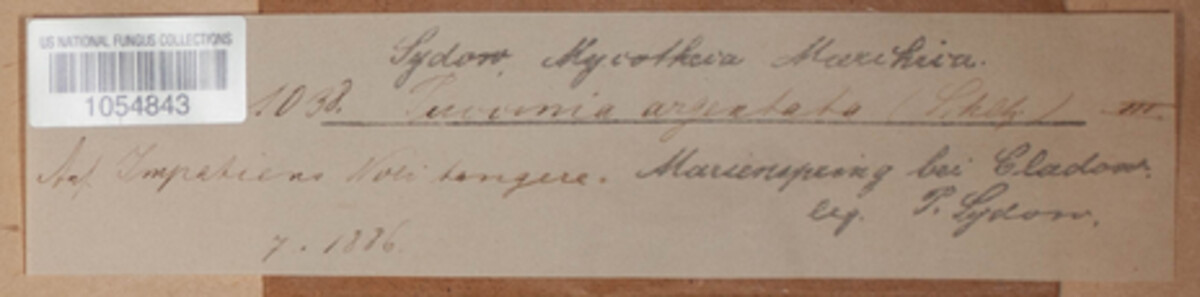 US NATIONAL FUNGUS COLLECTIONS
1054843
Sydow, Mycotheca Marchica.
1038. Puccinia argentata (Schltz)
Auf Impatiens Noli tangere. Marienspring bei Cladow.
leg. P. Sydow.
7. 1886.